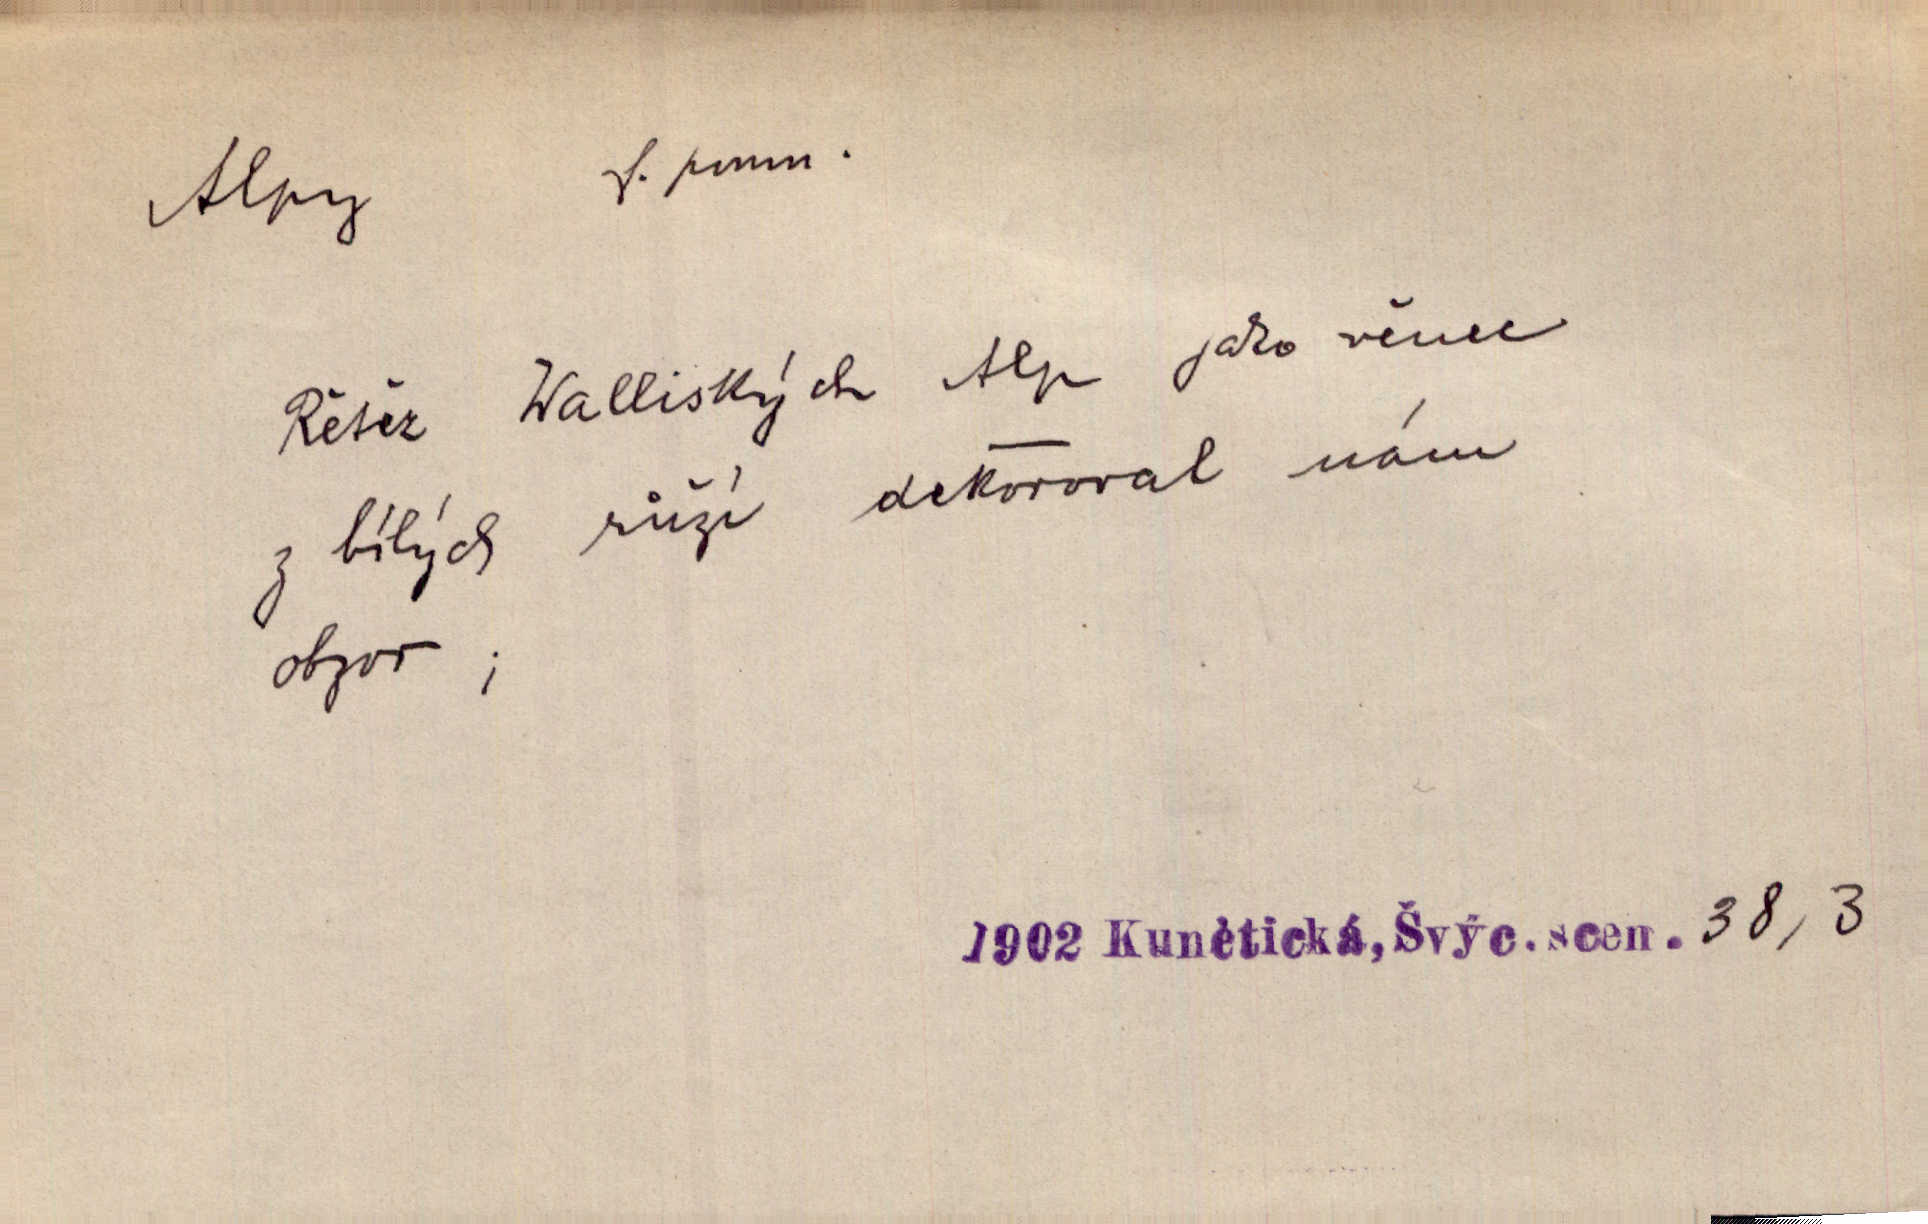 Alpy f. pomn.
Řetěz Walliských Alp jako věnec
z bílých růží dekoroval nám
obzor ;
1902 Kunětická, Švýc. scen. 38, 3